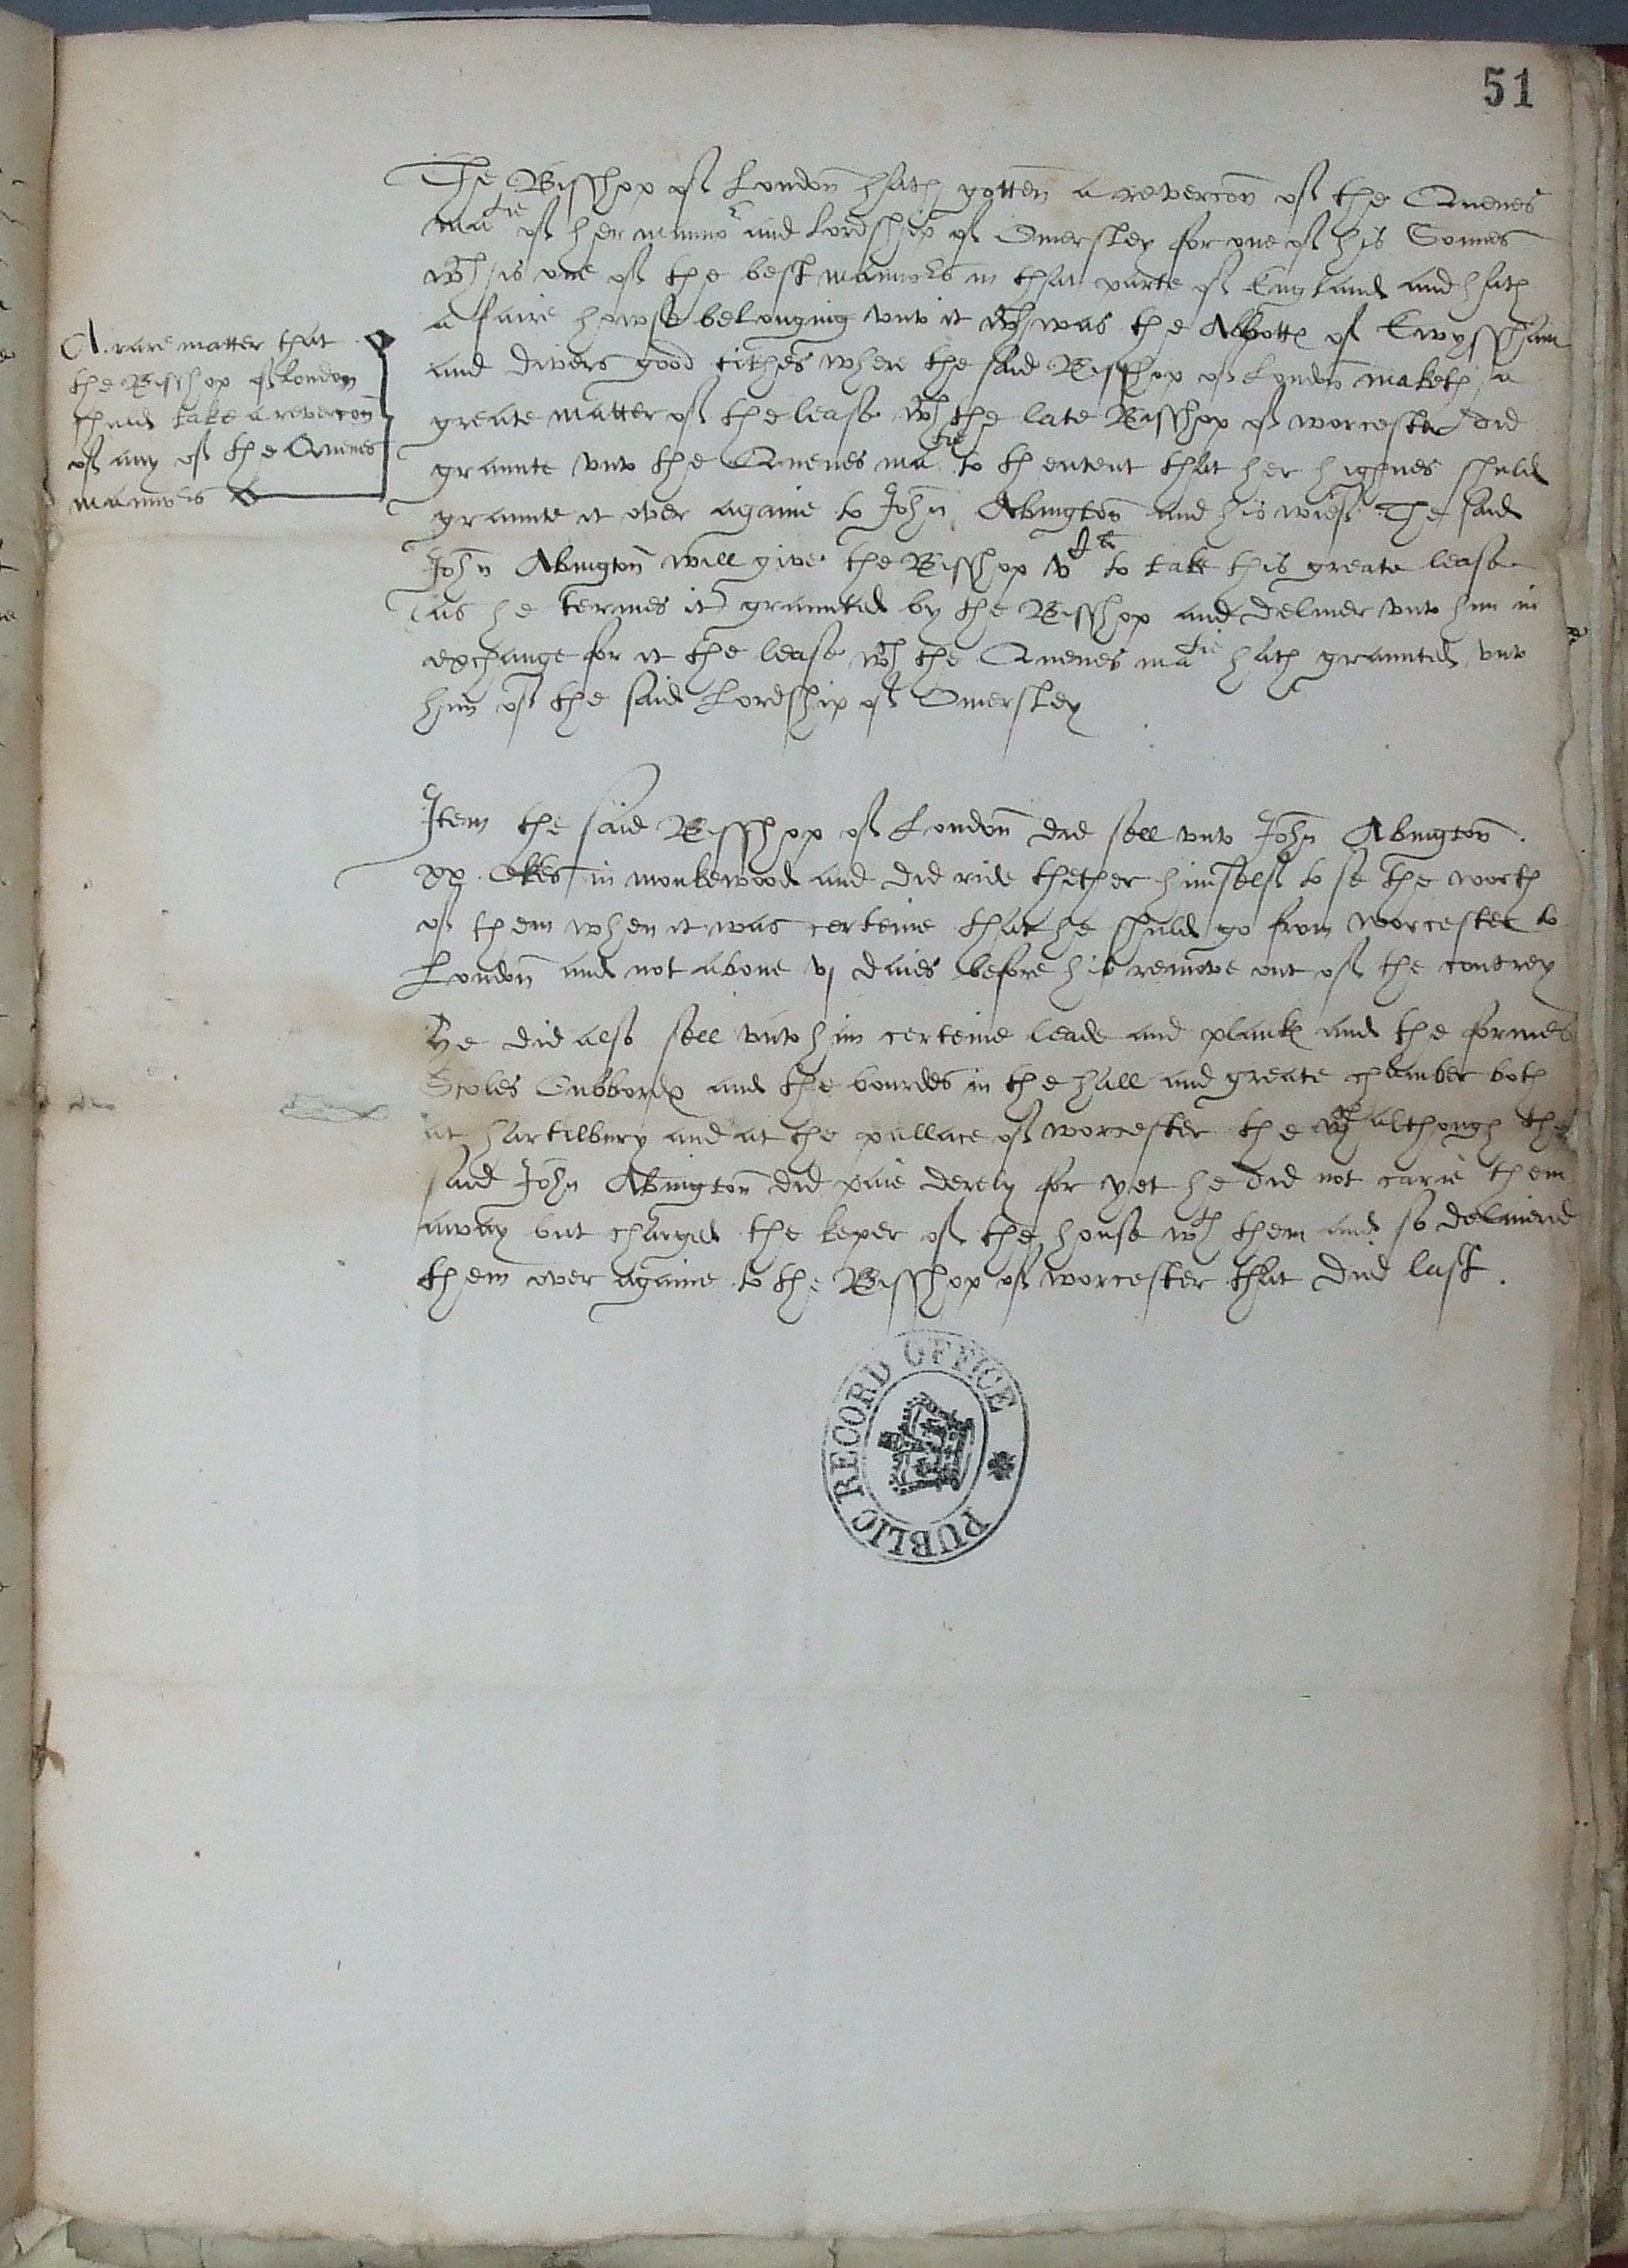 51
The Bisshop of London hath gotten a revercon of the Quenes
matie of her mannor and Lordship of Omersley for one of his Sonnes
wch is one of the best mannors in that parte of England and hath
a faire howse belonging vnto it wch was the Abbottes of Ewyssham
and divers good tithes where the said Bisshop of London maketh a
greate matter of the lease wch the late Bisshop of worcester did
graunte vnto the Quenes matie to thentent that her highnes shuld
graunte it over againe to John Abington and his wief. The said
John Abington will give the Bisshop vCli to take this greate lease
(as he termes it) graunted by the Bisshop and deliuer vnto him in
exchange for it the lease wch the Quenes matie hath graunted vnto
him of the said Lordship of Omersley
A rare matter that
the Bisshop of London
shuld take a revercon
of any of the Quenes
mannors
Item the said Bisshop of London did sell vnto John Abington
xx Okes in monkewood and did ride thether himself to se the worth
of them when it was certeine that he shuld go from worcester to
London and not aboue vj daies before his remove out of the contrey
He did also sell vnto him certeine leade and plankes and the formes
Stoles Cubbordes and the bourdes in the hall and greate chamber both
at hartilbury and at the pallace of worcester the wch although the
said John Abington did paie derely for yet he did not carie them
away but charged the keper of the house wth them and so deliuered
them over againe to the Bisshop of worcester that died last.
PUBLIC RECORD OFFICE